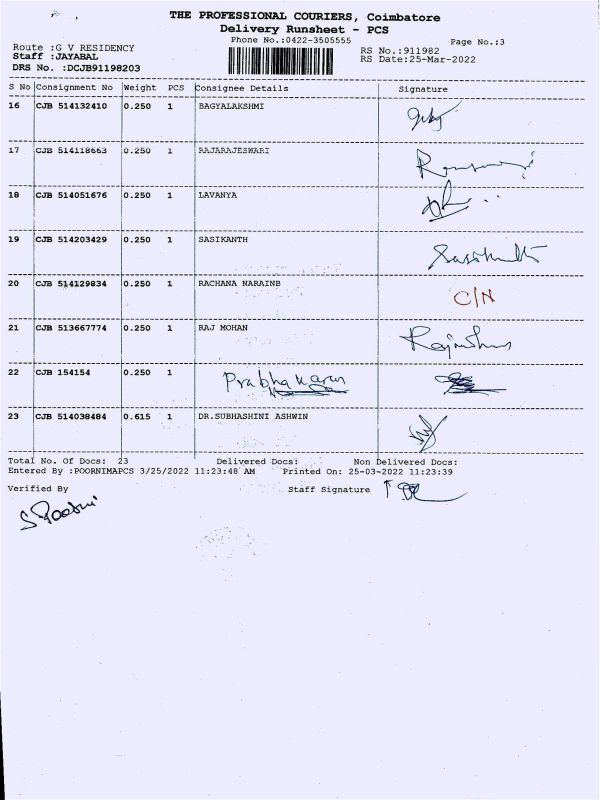 THE PROFESSIONAL COURIERS, Coimbatore
Delivery Runsheet - PCS
Phone No.:0422-3505555 Page No.:3
Route :G V RESIDENCY RS No.:911982
Staff :JAYABAL RS Date:25-Mar-2022
DRS No. :DCJB91198203
S No Consignment No Weight PCS Consignee Details Signature
16 CJB 514132410 0.250 1 BAGYALAKSHMI
17 CJB 514118663 0.250 1 RAJARAJESWARI
18 CJB 514051676 0.250 1 LAVANYA
19 CJB 514203429 0.250 1 SASIKANTH
20 CJB 514129834 0.250 1 RACHANA NARAINB C/N
21 CJB 513667774 0.250 1 RAJ MOHAN
22 CJB 154154 0.250 1 Prabhakaran
23 CJB 514038484 0.615 1 DR.SUBHASHINI ASHWIN
Total No. Of Docs: 23 Delivered Docs: Non Delivered Docs:
Entered By :POORNIMAPCS 3/25/2022 11:23:48 AM Printed On: 25-03-2022 11:23:39
Verified By Staff Signature